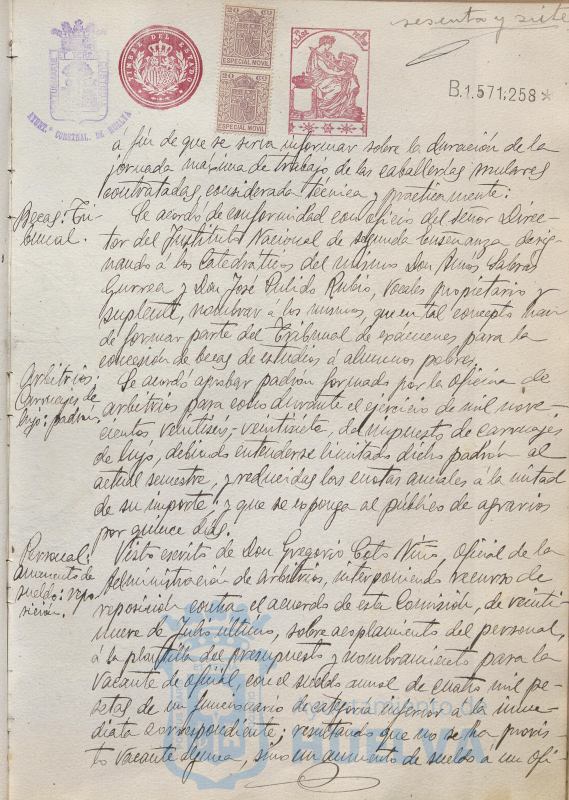 sesenta y siete
TIMBRE DEL ESTADO
20 CS
ESPECIAL MOVIL
20 CS
ESPECIAL MOVIL
B.1.571,258*
AYUNT.º CONSTNAL. DE HUELVA
á fin de que se sirva informar sobre la duración de la
jornada máxima de trabajo de las caballerías mulares
contratadas, considerada técnica y practicamente.
Becas: Tri-
bunal.
Se acordó de conformidad con oficio del señor Direc-
tor del Instituto Nacional de segunda Enseñanza desig-
nando á los Catedráticos del mismo Don Ginés Sabras
Gurrea y Don José Pulido Rubio, vocales propietario y
suplente, nombrar a los mismos, que en tal concepto han
de formar parte del Tribunal de exámenes para la
concesión de becas de estudios á alumnos pobres.
Arbitrios:
Carruajes de
lujo: padrón
Se acordó aprobar padrón formado por la oficina de
arbitrios para cobro durante el ejercicio de mil nove-
cientos veintiseis-veintisiete, del impuesto de carruajes
de lujo, debiendo entenderse limitado dicho padrón al
actual semestre, y reducidas las cuotas anuales á la mitad
de su importe y que se exponga al público de agravios
por quince días.
Personal:
aumento de
sueldo: repo-
sición.
Visto escrito de Don Gregorio Toto Niño, oficial de la
Administración de Arbitrios, interponiendo recurso de
reposición contra el acuerdo de esta Comisión, de veinti-
nueve de Julio último, sobre acoplamiento del personal,
á la plantilla del presupuesto y nombramiento para la
vacante de oficial, con el sueldo anual de cuatro mil pe-
setas de un funcionario de categoría inferior á la inme-
diata correspondiente; resultando que no se ha provis-
to vacante alguna, sino un aumento de sueldo a un ofi-
Ayuntamiento de
HUELVA